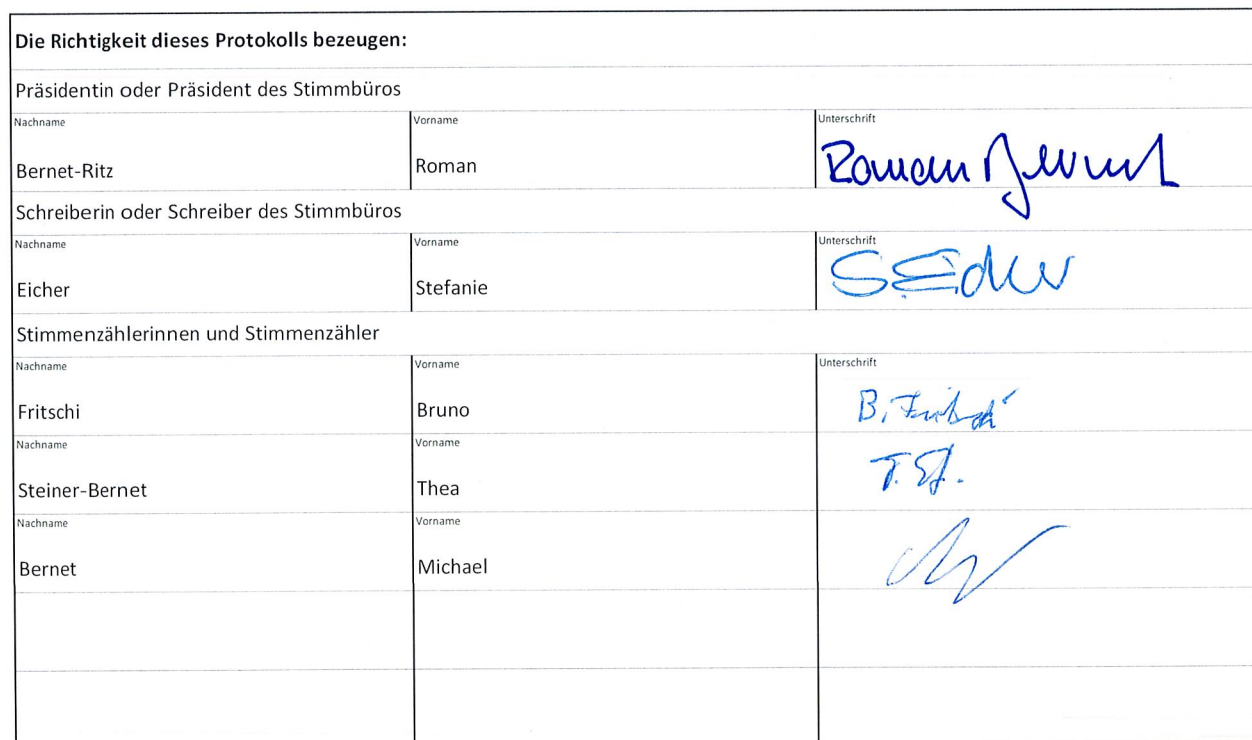 Die Richtigkeit dieses Protokolls bezeugen:
Präsidentin oder Präsident des Stimmbüros
Nachname Vorname Unterschrift
Bernet-Ritz Roman Roman Bernet
Schreiberin oder Schreiber des Stimmbüros
Nachname Vorname Unterschrift
Eicher Stefanie S. Eicher
Stimmenzählerinnen und Stimmenzähler
Nachname Vorname Unterschrift
Fritschi Bruno B. Fritschi
Nachname Vorname
Steiner-Bernet Thea T. St.
Nachname Vorname
Bernet Michael